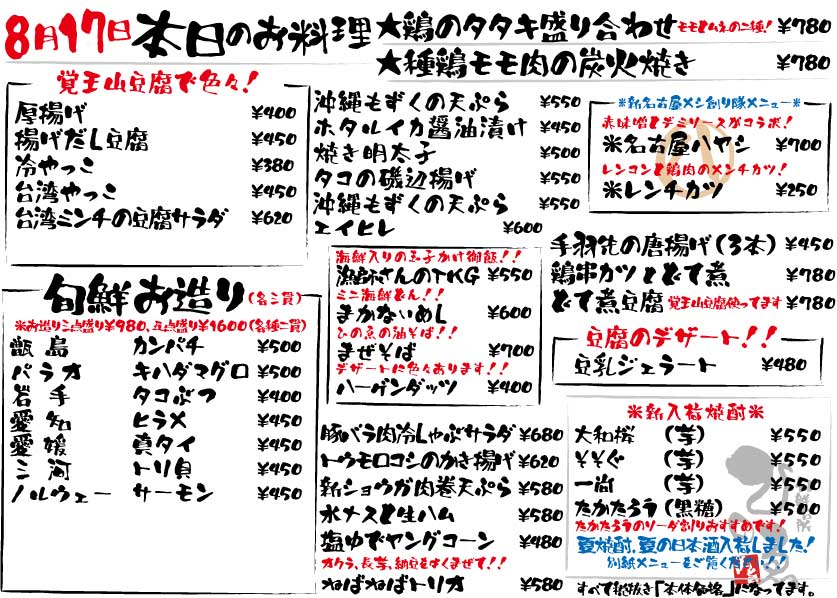 8月17日 本日のお料理
★鶏のタタキ盛り合わせ モモとムネの二種! ¥780
★種鶏モモ肉の炭火焼き ¥780
覚王山豆腐で色々!
厚揚げ ¥400
揚げだし豆腐 ¥450
冷やっこ ¥380
台湾やっこ ¥450
台湾ミンチの豆腐サラダ ¥620
旬鮮お造り(各三貫)
※お造り三点盛り¥980、五点盛り¥1600(各種二貫)
甑島 カンパチ ¥500
パラオ キハダマグロ ¥500
岩手 タコぶつ ¥400
愛知 ヒラメ ¥450
愛媛 真タイ ¥450
三河 トリ貝 ¥450
ノルウェー サーモン ¥450
沖縄もずくの天ぷら ¥550
ホタルイカ醤油漬け ¥450
焼き明太子 ¥500
タコの磯辺揚げ ¥550
沖縄もずくの天ぷら ¥550
エイヒレ ¥600
海鮮入りの玉子かけ御飯!!
漁師さんのTKG ¥550
ミニ海鮮どん!!
まかないめし ¥600
ひの魚の油そば!!
まぜそば ¥700
デザートに色々あります!!
ハーゲンダッツ ¥400
豚バラ肉冷しゃぶサラダ ¥680
トウモロコシのかき揚げ ¥620
新ショウガ肉巻天ぷら ¥580
水ナスと生ハム ¥580
塩ゆでヤングコーン ¥480
オクラ、長芋、納豆をまぜて!!
ねばねばトリオ ¥580
※新名古屋メシ創り隊メニュー※
赤味噌とデミソースがコラボ!
※名古屋ハヤシ ¥700
レンコンと鶏肉のメンチカツ!
※レンチカツ ¥250
手羽先の唐揚げ(3本) ¥450
鶏串カツとどて煮 ¥780
どて煮豆腐 覚王山豆腐使ってます ¥780
豆腐のデザート!!
豆乳ジェラート ¥480
※新入荷焼酎※
大和桜 (芋) ¥550
そそぐ (芋) ¥550
一尚 (芋) ¥550
たかたろう(黒糖) ¥500
たかたろうのソーダ割りおすすめです!
夏焼酎、夏の日本酒入荷しました!
別紙メニューをご覧ください!!
すべて税抜き「本体価格」になってます。